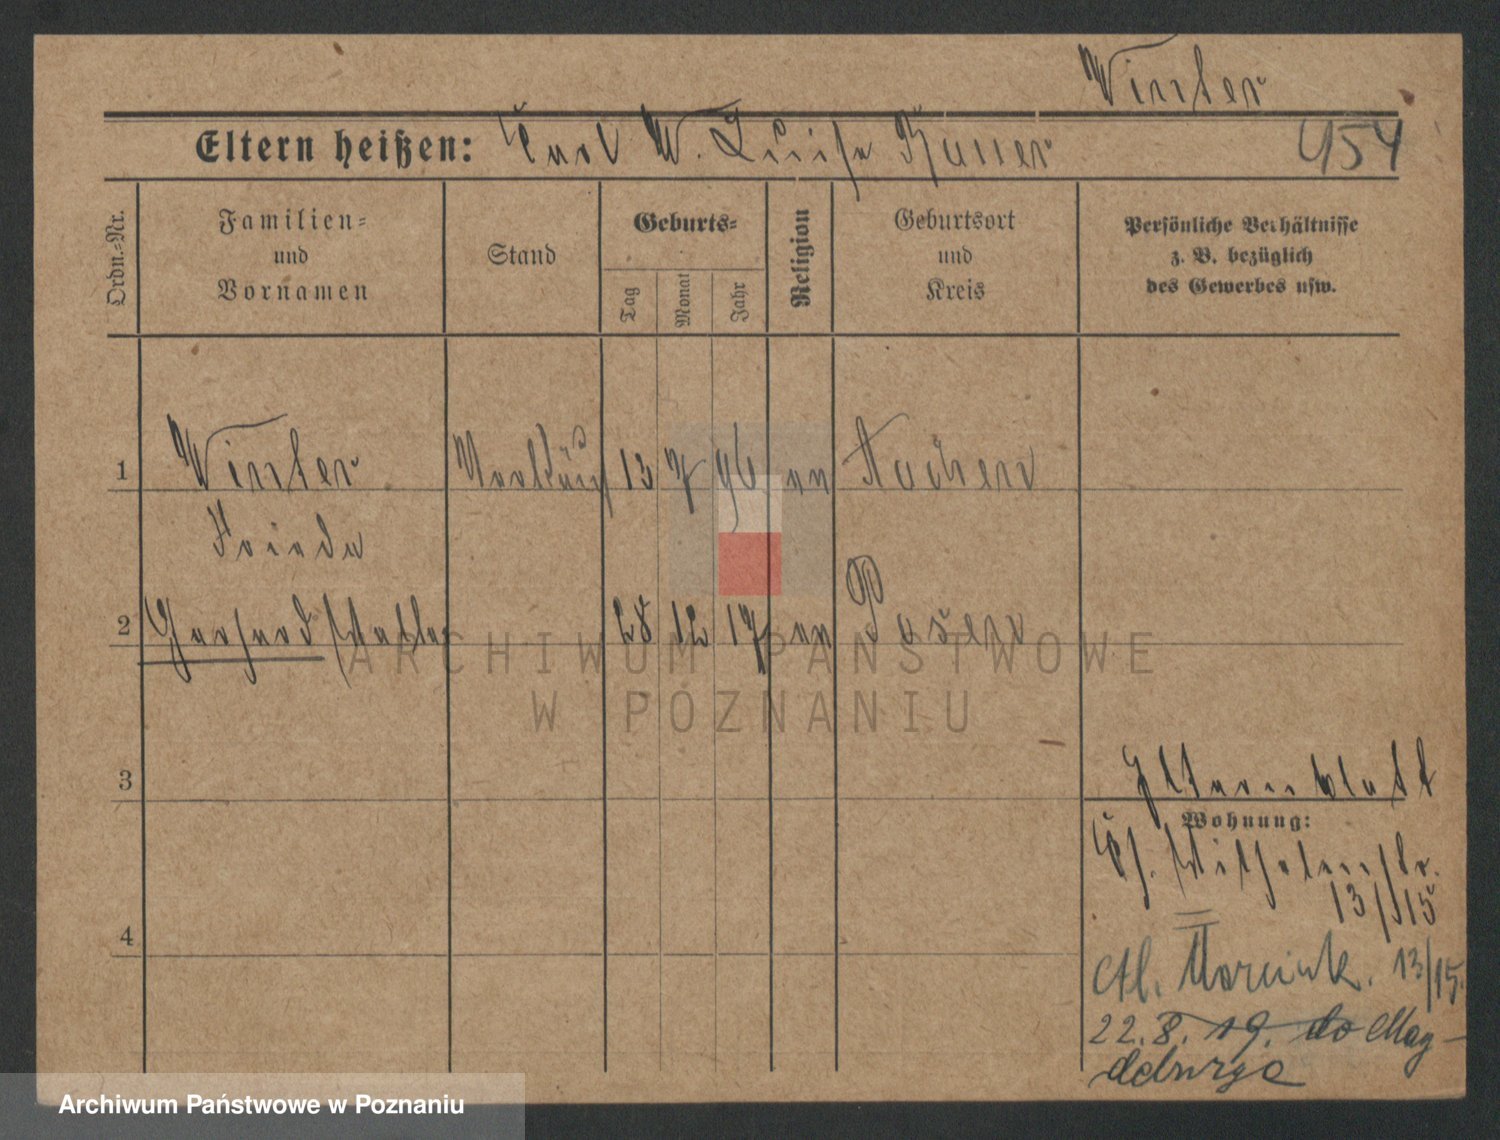 Winter
Eltern heißen: Carl W. Luise Bauer
454
Ordn.=Nr.
Familien=
und
Vornamen
Stand
Geburts=
Tag
Monat
Jahr
Religion
Geburtsort
und
Kreis
Persönliche Verhältnisse
z. B. bezüglich
des Gewerbes usw.
1 Winter 13 7 96 Aachen
Frieda
2 Gerhard Walter 28 12 17 Posen
3
Elternblatt
Wohnung:
Wilhelmstr.
13/15
4
Al. Marcink. 13/15.
22.8.19. do Mag-
deburga
ARCHIWUM PAŃSTWOWE
W POZNANIU
Archiwum Państwowe w Poznaniu